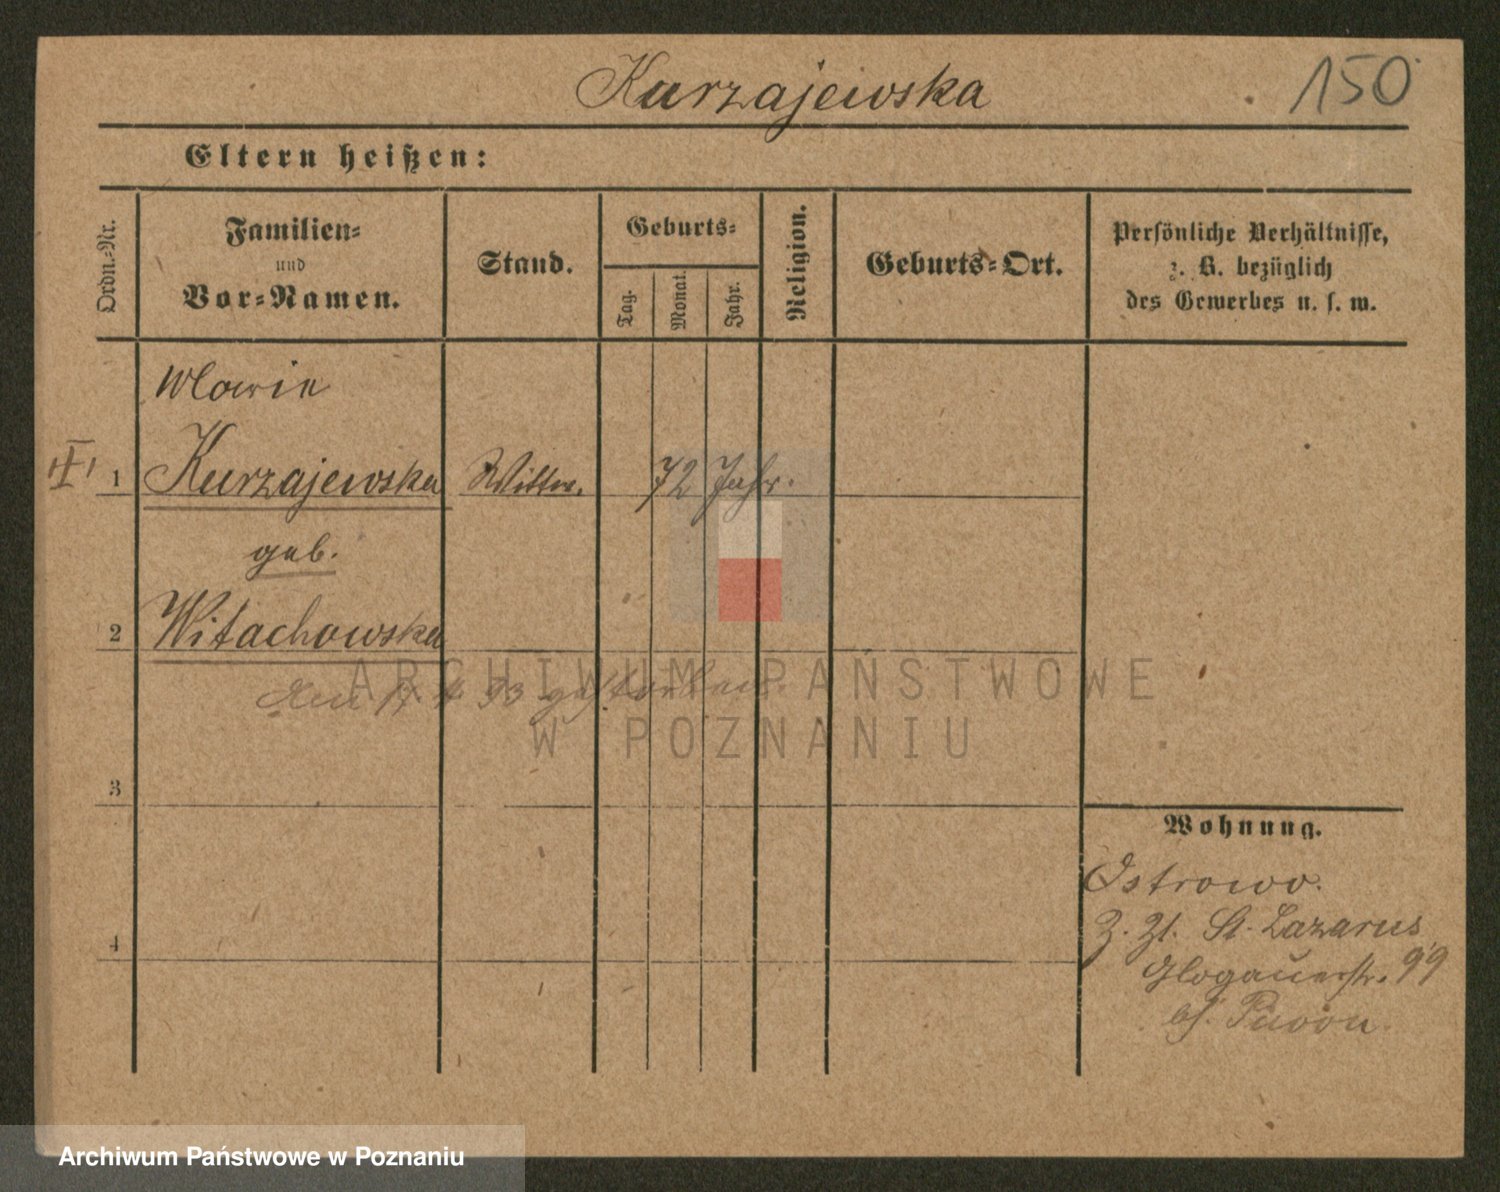 Kurzajewska
150
Eltern heißen:
Ordn.-Nr.
Familien-
und
Vor-Namen.
Stand.
Geburts-
Tag.
Monat.
Jahr.
Religion.
Geburts-Ort.
Persönliche Verhältnisse,
z. B. bezüglich
des Gewerbes u. s. w.
Marie
I
1 Kurzajewska Wittw. 72 Jahr.
geb.
2 Witachowska
den 17 4 93 gestorben.
3
4
Wohnung.
Ostrowo.
Z. Zt. St. Lazarus
Glogauerstr. 99
bei
ARCHIWUM PAŃSTWOWE
W POZNANIU
Archiwum Państwowe w Poznaniu